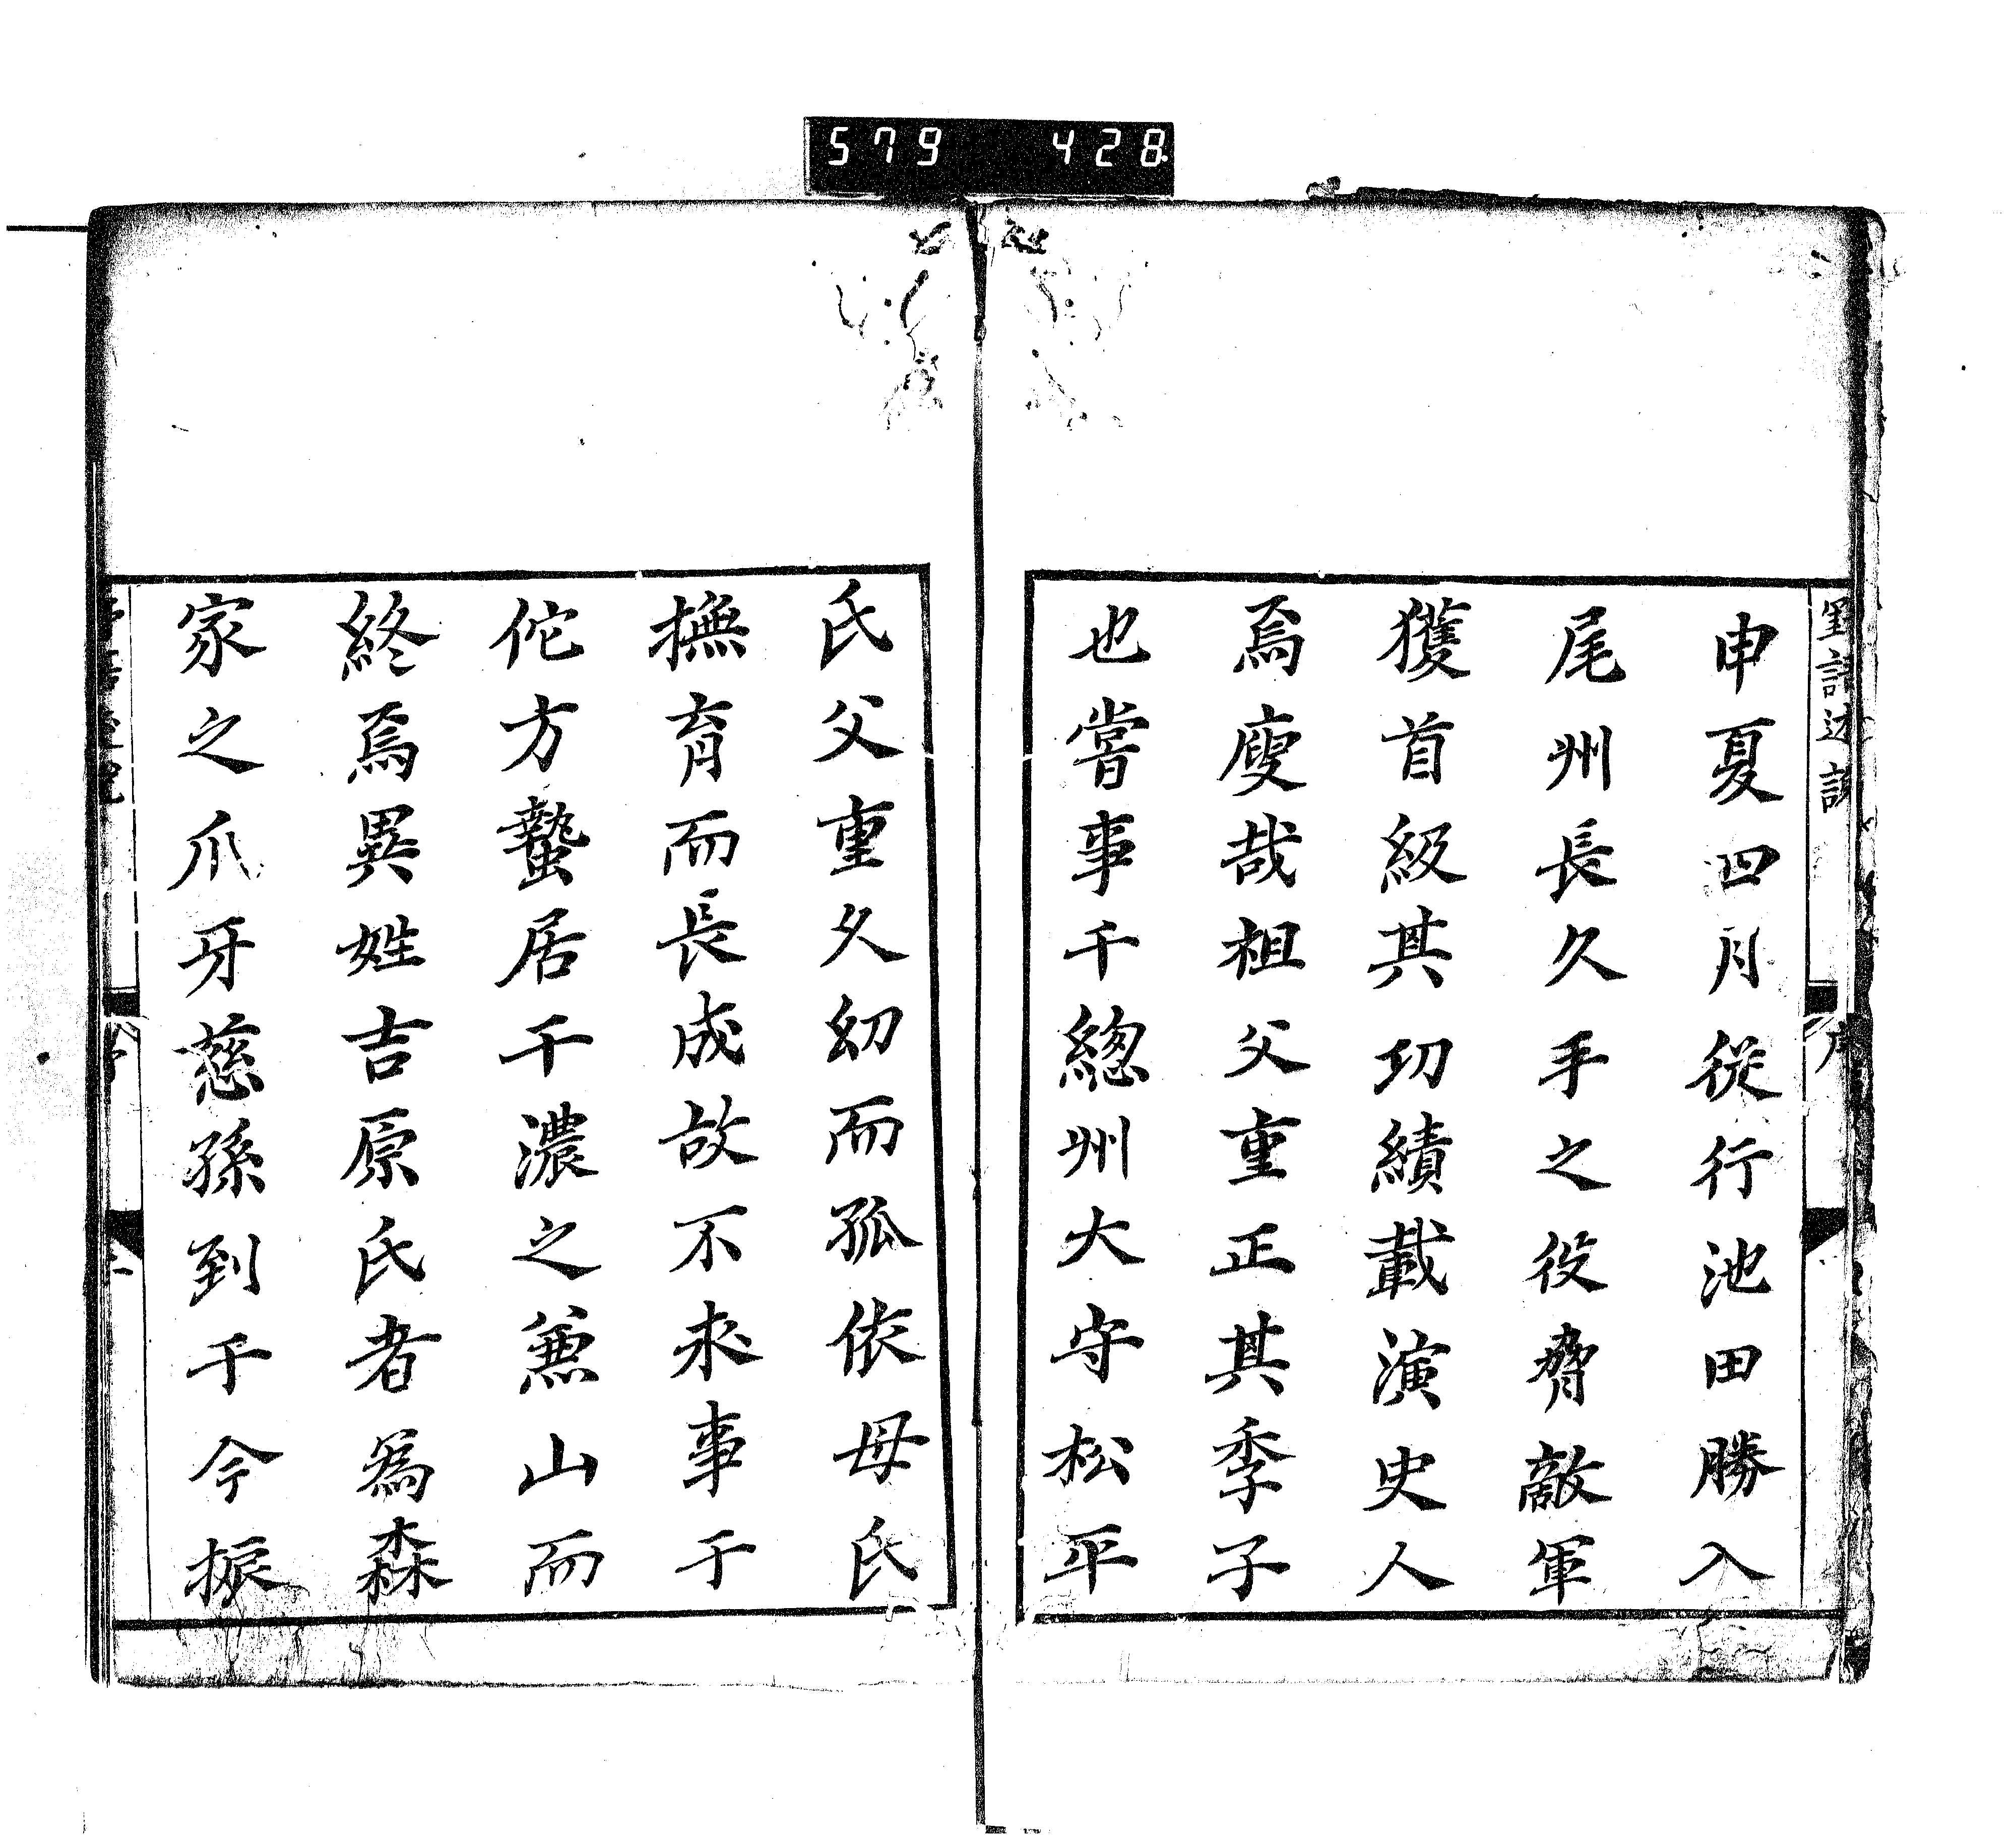 579 428
申夏四月從行池田勝入
尾州長久手之役脅敵軍
獲首級其功績載演史人
焉廋哉祖父重正其季子
也嘗事千總州大守松平
氏父重久幼而孤依母氏
撫育而長成故不求事于
佗方蟄居千濃之兼山而
終焉異姓吉原氏者為森
家之爪牙慈孫到于今振